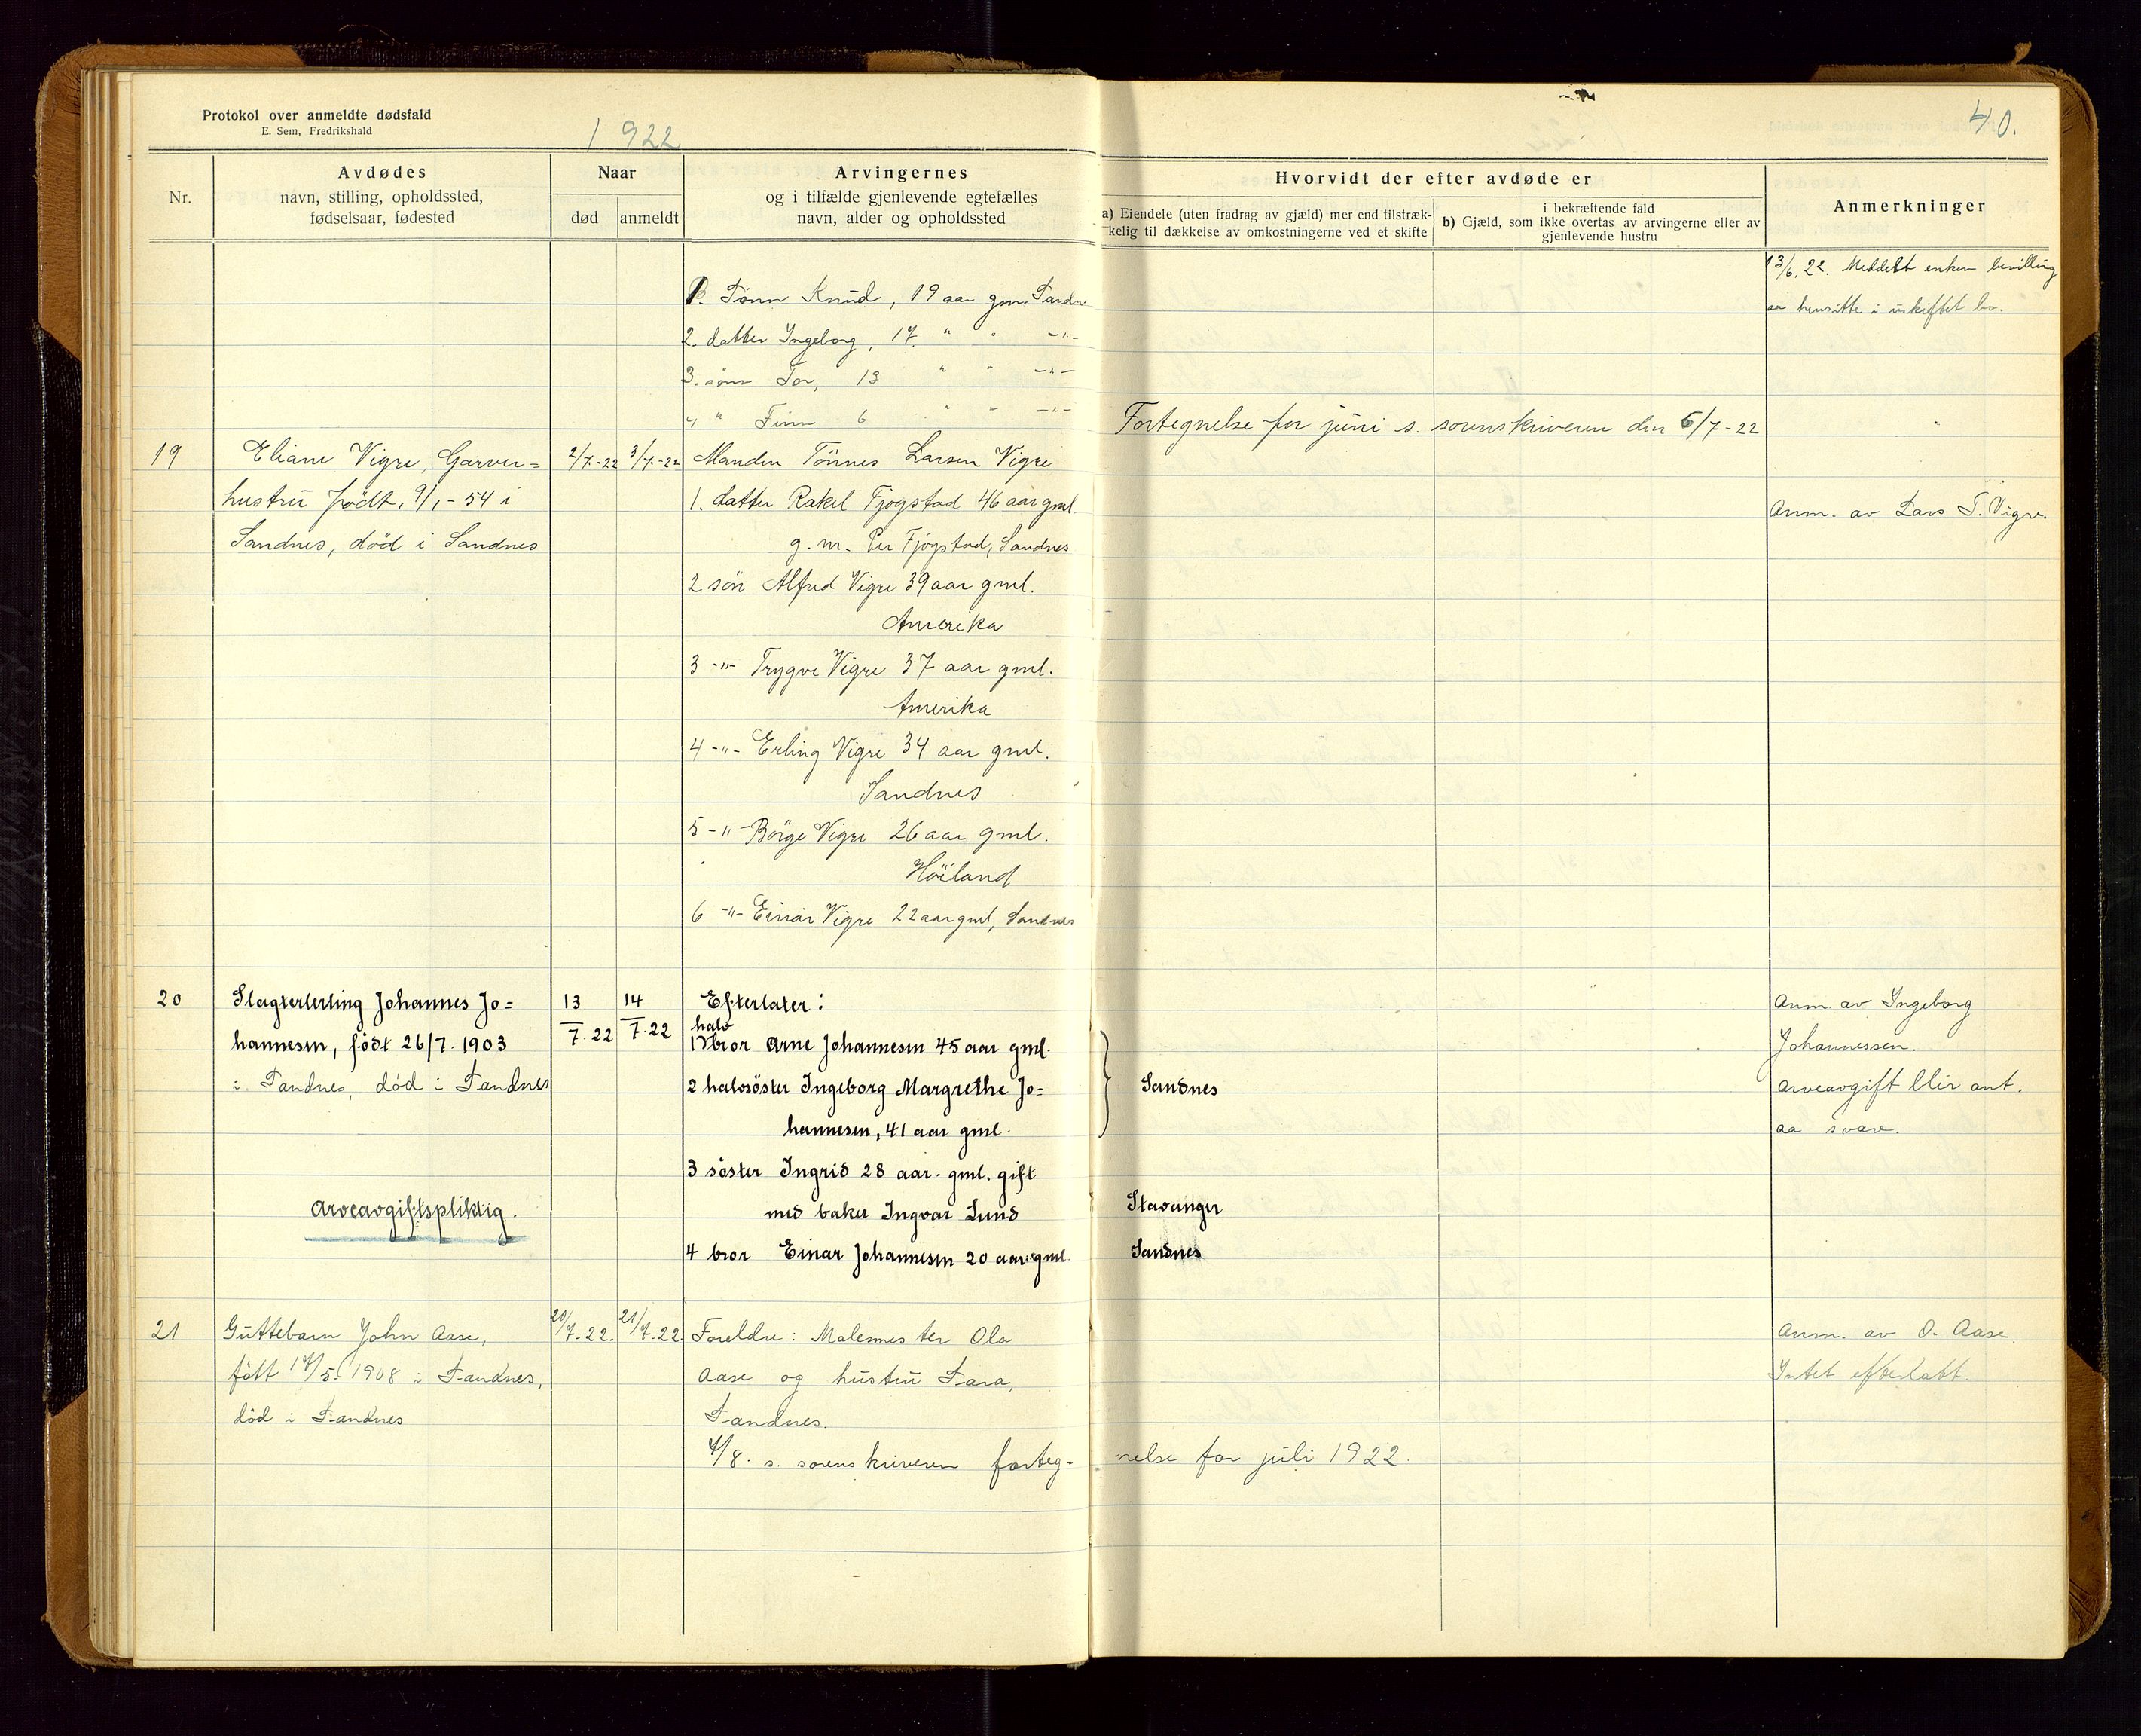 Protokol over anmeldte dødsfald
E. Sem, Fredrikshald
1922
40.
Nr.
Avdødes
navn, stilling, opholdssted,
fødselsaar, fødested
Naar
død
anmeldt
Arvingernes
og i tilfælde gjenlevende egtefælles
navn, alder og opholdssted
Hvorvidt der efter avdøde er
a) Eiendele (uten fradrag av gjæld) mer end tilstræk-
kelig til dækkelse av omkostningerne ved et skifte
i bekræftende fald
b) Gjæld, som ikke overtas av arvingerne eller av
gjenlevende hustru
Anmerkninger
1. Sönn Knud, 19 aar gm. Sandn
2. datter Ingeborg, 17 " " -"-
3. sönn Tor, 13 " " -"-
4 " Finn 6 " " -"-
13/6.22. Meddelt enken bevilling
aa hensitte i uskiftet bo.
Fortegnelse for juni s. sorenskriveren den 6/7-22
19
Eliane Vigre, Garver=
hustru födt, 9/1-54 i
Sandnes, död i Sandnes
2/7.-22
3/7.-22
Manden Tönnes Larsen Vigre
1. datter Rakel Fjogstad 46 aar gml
g. m. Per Fjogstad, Sandnes
2 sön Alfred Vigre 39 aar gml.
Amerika
3 -"- Trygve Vigre 37 aar gml.
Amerika
4 -"- Erling Vigre 34 aar gml.
Sandnes
5 -"- Börge Vigre 26 aar gml.
Höiland
6 -"- Einar Vigre 22 aar gml, Sandnes
Anm. av Lars T. Vigre.
20
Slagterlerling Johannes Jo=
hannesen, födt 26/7. 1903
i Sandnes, död i Sandnes
arveavgiftspliktig.
13
7.22
14
7.22
Efterlater:
halv
1 bror Arne Johannesen 45 aar gml.
2 halvsöster Ingeborg Margrethe Jo=
hannesen, 41 aar gml.
Sandnes
3 söster Ingrid 28 aar. gml. gift
med baker Ingvar Lund
Stavanger
4 bror Einar Johannesen 20 aar gml.
Sandnes
Anm av Ingeborg
Johannessen.
arveavgift blir ant.
aa svare.
21
Guttebarn John Aase,
fött 17/5. 1908 i Sandnes,
död i Sandnes
20/7.22.
21/7.22.
Foreldre: Malermester Ola
Aase og hustru Sara,
Sandnes.
Anm. av O. Aase.
Intet efterlatt.
4/8. s. sorenskriveren forteg-
nelse for juli 1922.